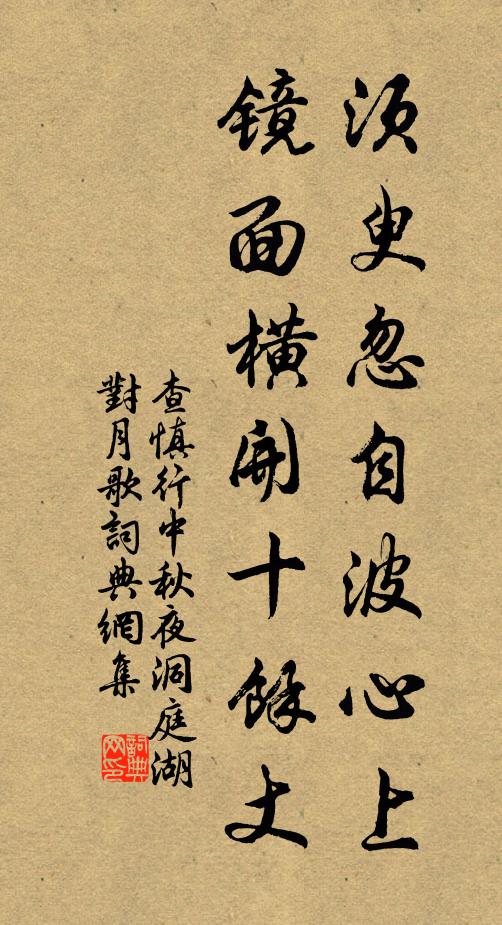 須臾忽自波心上
鏡面橫開十餘丈
查慎行中秋夜洞庭湖
對月歌詞典網集
詞典网印